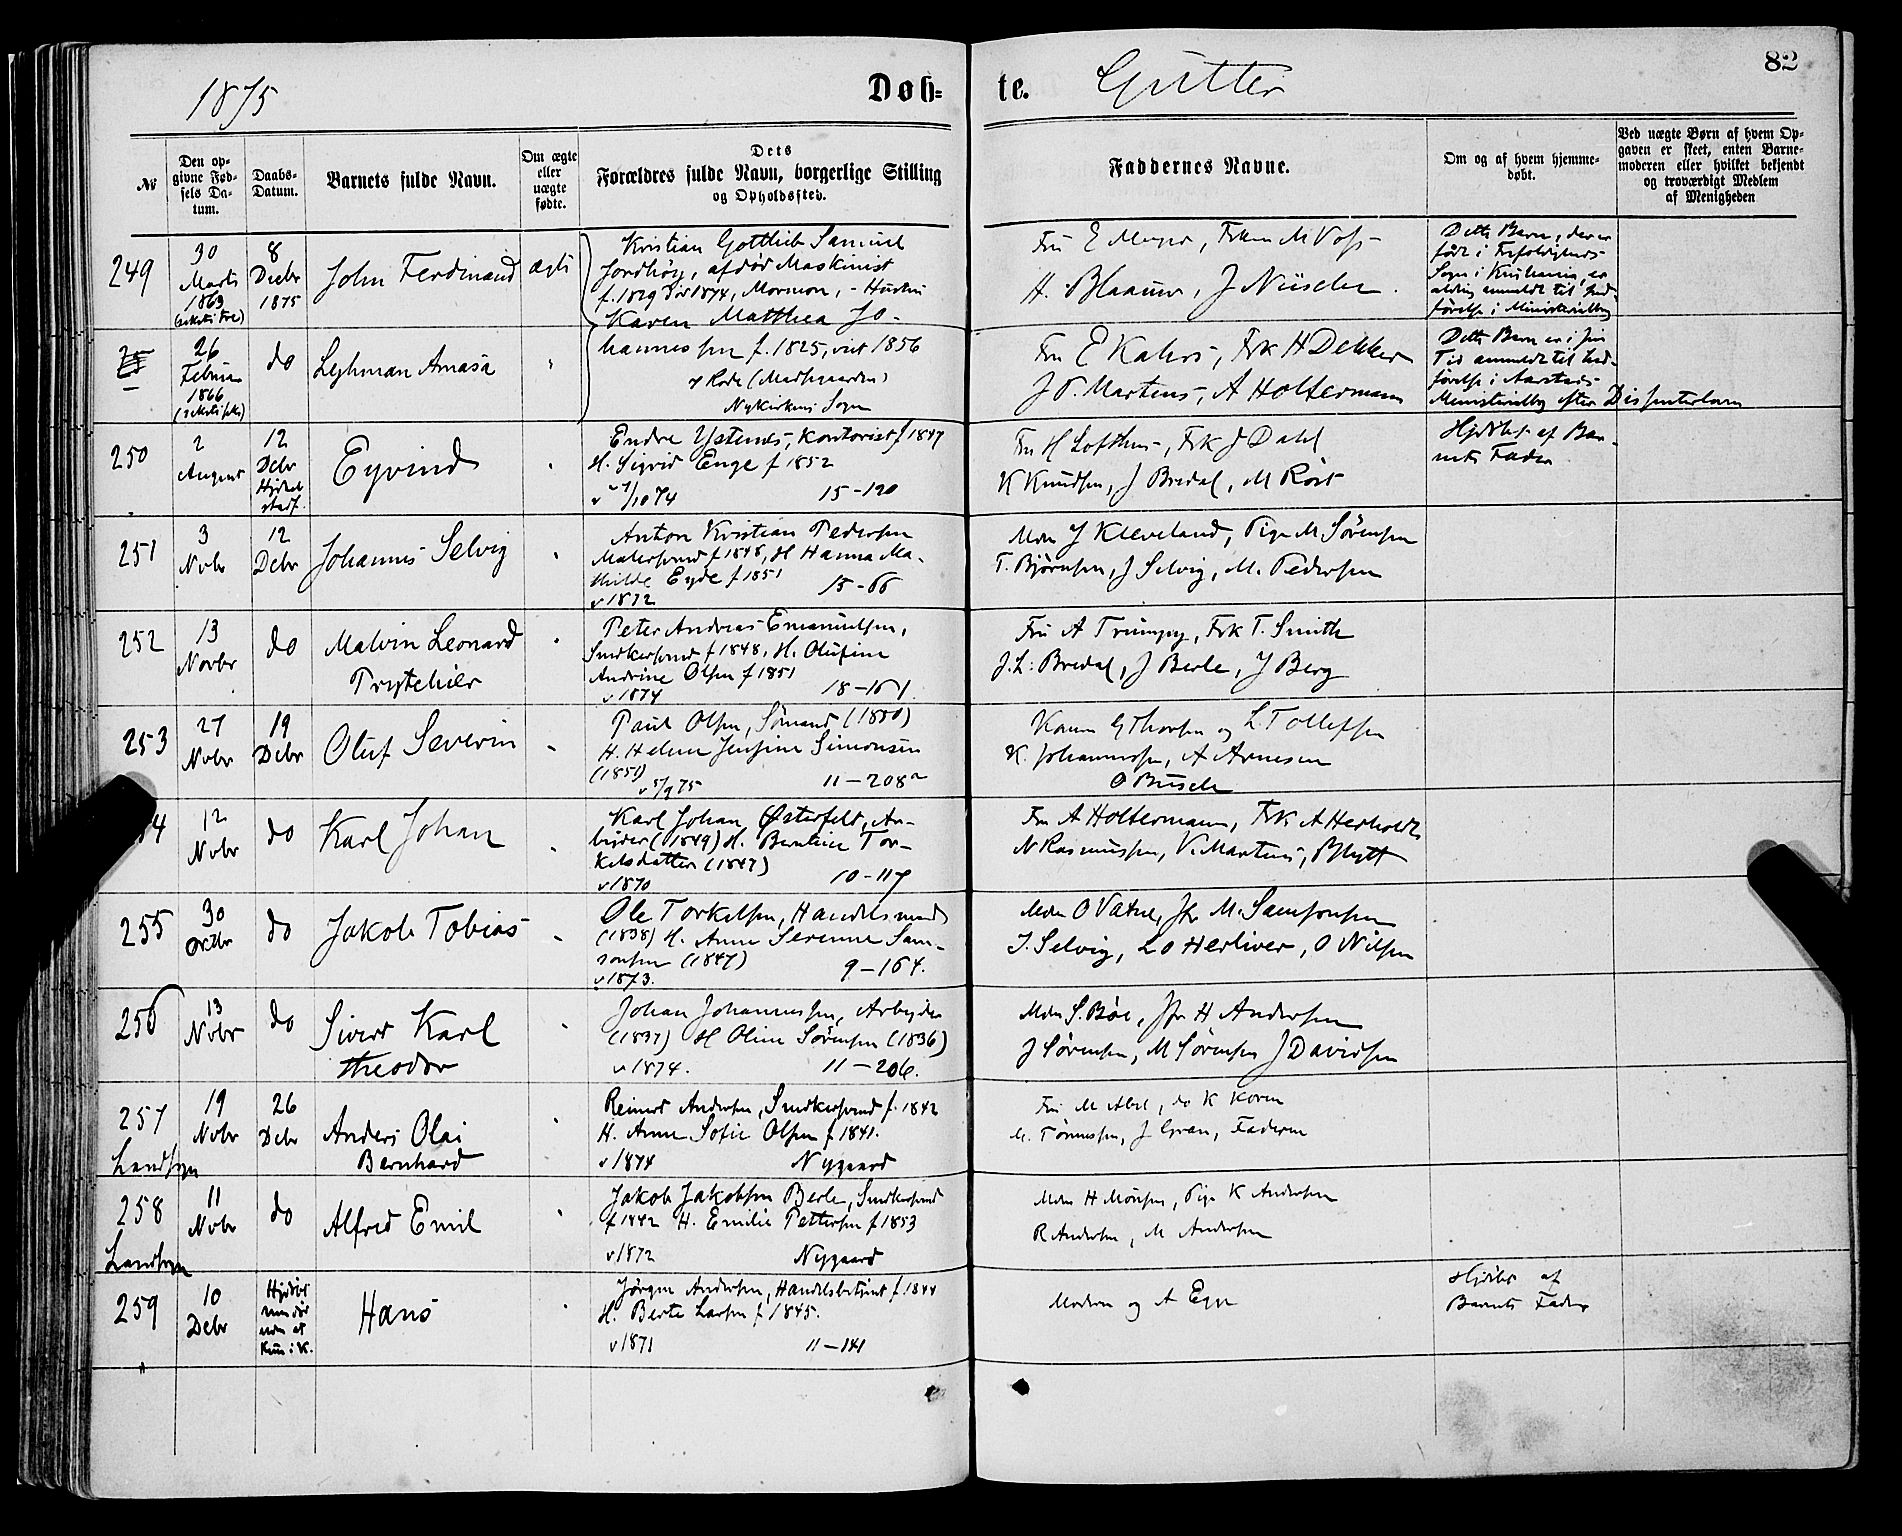 82
1875
Døb-
te.
Gutter
No
Den op-
givne Fød-
sels Da-
tum.
Daabs-
Datum.
Barnets fulde Navn.
Om ægte
eller
uægte
fødte.
Dets
Forældres fulde Navn, borgerlige Stilling
og Opholdssted.
Faddernes Navne.
Om og af hvem hjemme-
døbt.
Ved uægte Børn af hvem Op-
gaven er skeet, enten Barne-
moderen eller hvilket bekjendt
og troværdigt Medlem
af Menigheden
249
30
Marts
1863
8
Decbr
1875
John Ferdinand
ægte
Kristian Gottlieb Samuel
afdød Maskinist
f. 1829 død 1874, Mormon, - Hustru
Karen Matthea Jo-
Fru E Meyer, M Voss
H. Blaauw, J
Dette Barn, der er
født i Trefoldigheds
Sogn i Kristiania, er
aldrig anmeldt til Ind-
førelse i Ministerialbog
26
Februar
1866
do
Lehman Amasa
hannessen f. 1825, viet 1856
Nykirkens Sogn
Fru E Kahrs, Frk H Dekker
J P. Martens, A Holtermann
Dette Barn er i sin
Tid anmeldt til Ind-
førelse i Aarstads
Ministerialbog efter Dissenterloven
250
2
August
12
Debr
Eyvind
Endre Ystenes, Kontorist f 1847
H. Sigrid Enge f 1852
15-120
Fru H Lofthus, Frk J Dahl
K Knudsen, J Bredal, M Røst
Hjdøbt af Bar-
nets Fader
251
3
Nvbr
12
Debr
Johannes Selvig
Anton Kristian Pedersen
Malersvend f 1848, H Hanna Ma-
thilde Eyde f 1851
v 1872 15-66
Mdm J Kleveland, Pige M. Sørensen
T. Bjørnsen, J Selvig, M. Pedersen
252
13
Novbr
do
Malvin Leonard
Peter Andreas Emanuelsen,
Snedkersvend f 1848, H. Olufine
Andrine Olsen f 1851
v 1874 18-161
Fru A Trumpy, Frk T. Smith
J. L. Bredal, J Berle, J Berg
253
27
Nvbr
19
Debr
Oluf Severin
Paul Olsen, Sømand (1850)
H. Helene Jensine Simonsen
(1851)
v 5/9 75 11-208a
Karen G Thorsen og L Tollefsen
K. Johannessen, A Arnesen
O Busch
4
12
Nvbr
do
Karl Johan
Karl Johan Østerfelt, Ar-
beider (1849) H. Berntine Tor-
kelsdatter (1847)
v 1870 10-117
Fru A Holtermann, Frk A Herholdt
N Rasmussen, V. Martens, Blytt
255
30
Octbr
do
Jakob Tobias
Ole Torkelsen, Handelsmand
(1838) H. Anne Serenne Sam-
sonsen (1847)
v 1873. 9-164.
Mdm O Vatne, Jfr M. Samsonsen
J. Selvig, L O Herliver, O Nilsen
256
13
Nvbr
do
Sivert Karl
Theodor
Johan Johannessen, Arbeider
(1837) H Oline Sørensen (1836)
v 1874. 11-206.
Mdm S. Bøe, Jfr H Andersen
J Sørensen, M Sørensen J Davidsen
257
Landsogn
19
Nvbr
26
Debr
Anders Olai
Bernhard
Reinert Andersen, Snedkersvend f. 1842
H. Anne Sofie Olsen f 1841.
v 1874 Nygaard
Fru M Abel, do K Koren
M. Tønnessen, J Gran, Faderen
258
Landsogn
11
Nvbr
do
Alfred Emil
Jakob Jakobsen Berle, Snedkersvend
f 1842 H. Emilie Pettersen f 1853
v 1872 Nygaard
Mdm H Monsen, Pige K Andersen
R Andersen, M Andersen
259
10
Debr
Hjdøbt
Hans
Jørgen Andersen, Handelsbetjent f. 1844
H. Berte Larsen f 1845.
v 1871 11-141
Moderen og A Ege
Hjdøbt af
Barnets Fader